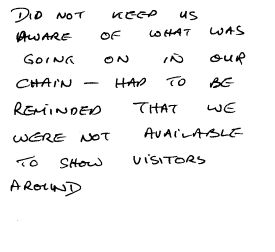 DID NOT KEEP US
AWARE OF WHAT WAS
GOING ON IN OUR
CHAIN - HAD TO BE
REMINDED THAT WE
WERE NOT AVAILABLE
TO SHOW VISITORS
AROUND